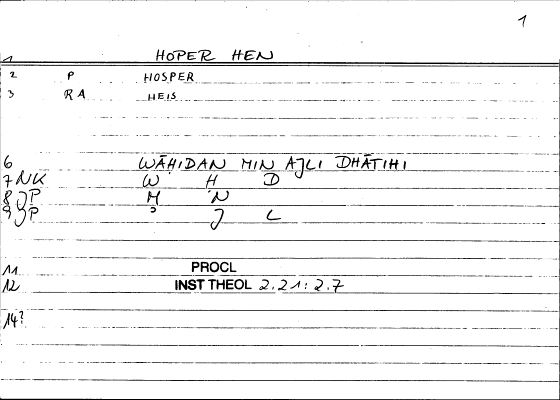 1
1 HOPER HEN
2 P HOSPER
3 RA HEIS
6 WĀHIDAN MIN AJLI DHĀTIHI
7 NK W H D
8 JP M N
9 JP ʾ J L
11 PROCL
12 INST THEOL 2.21:2.7
14?